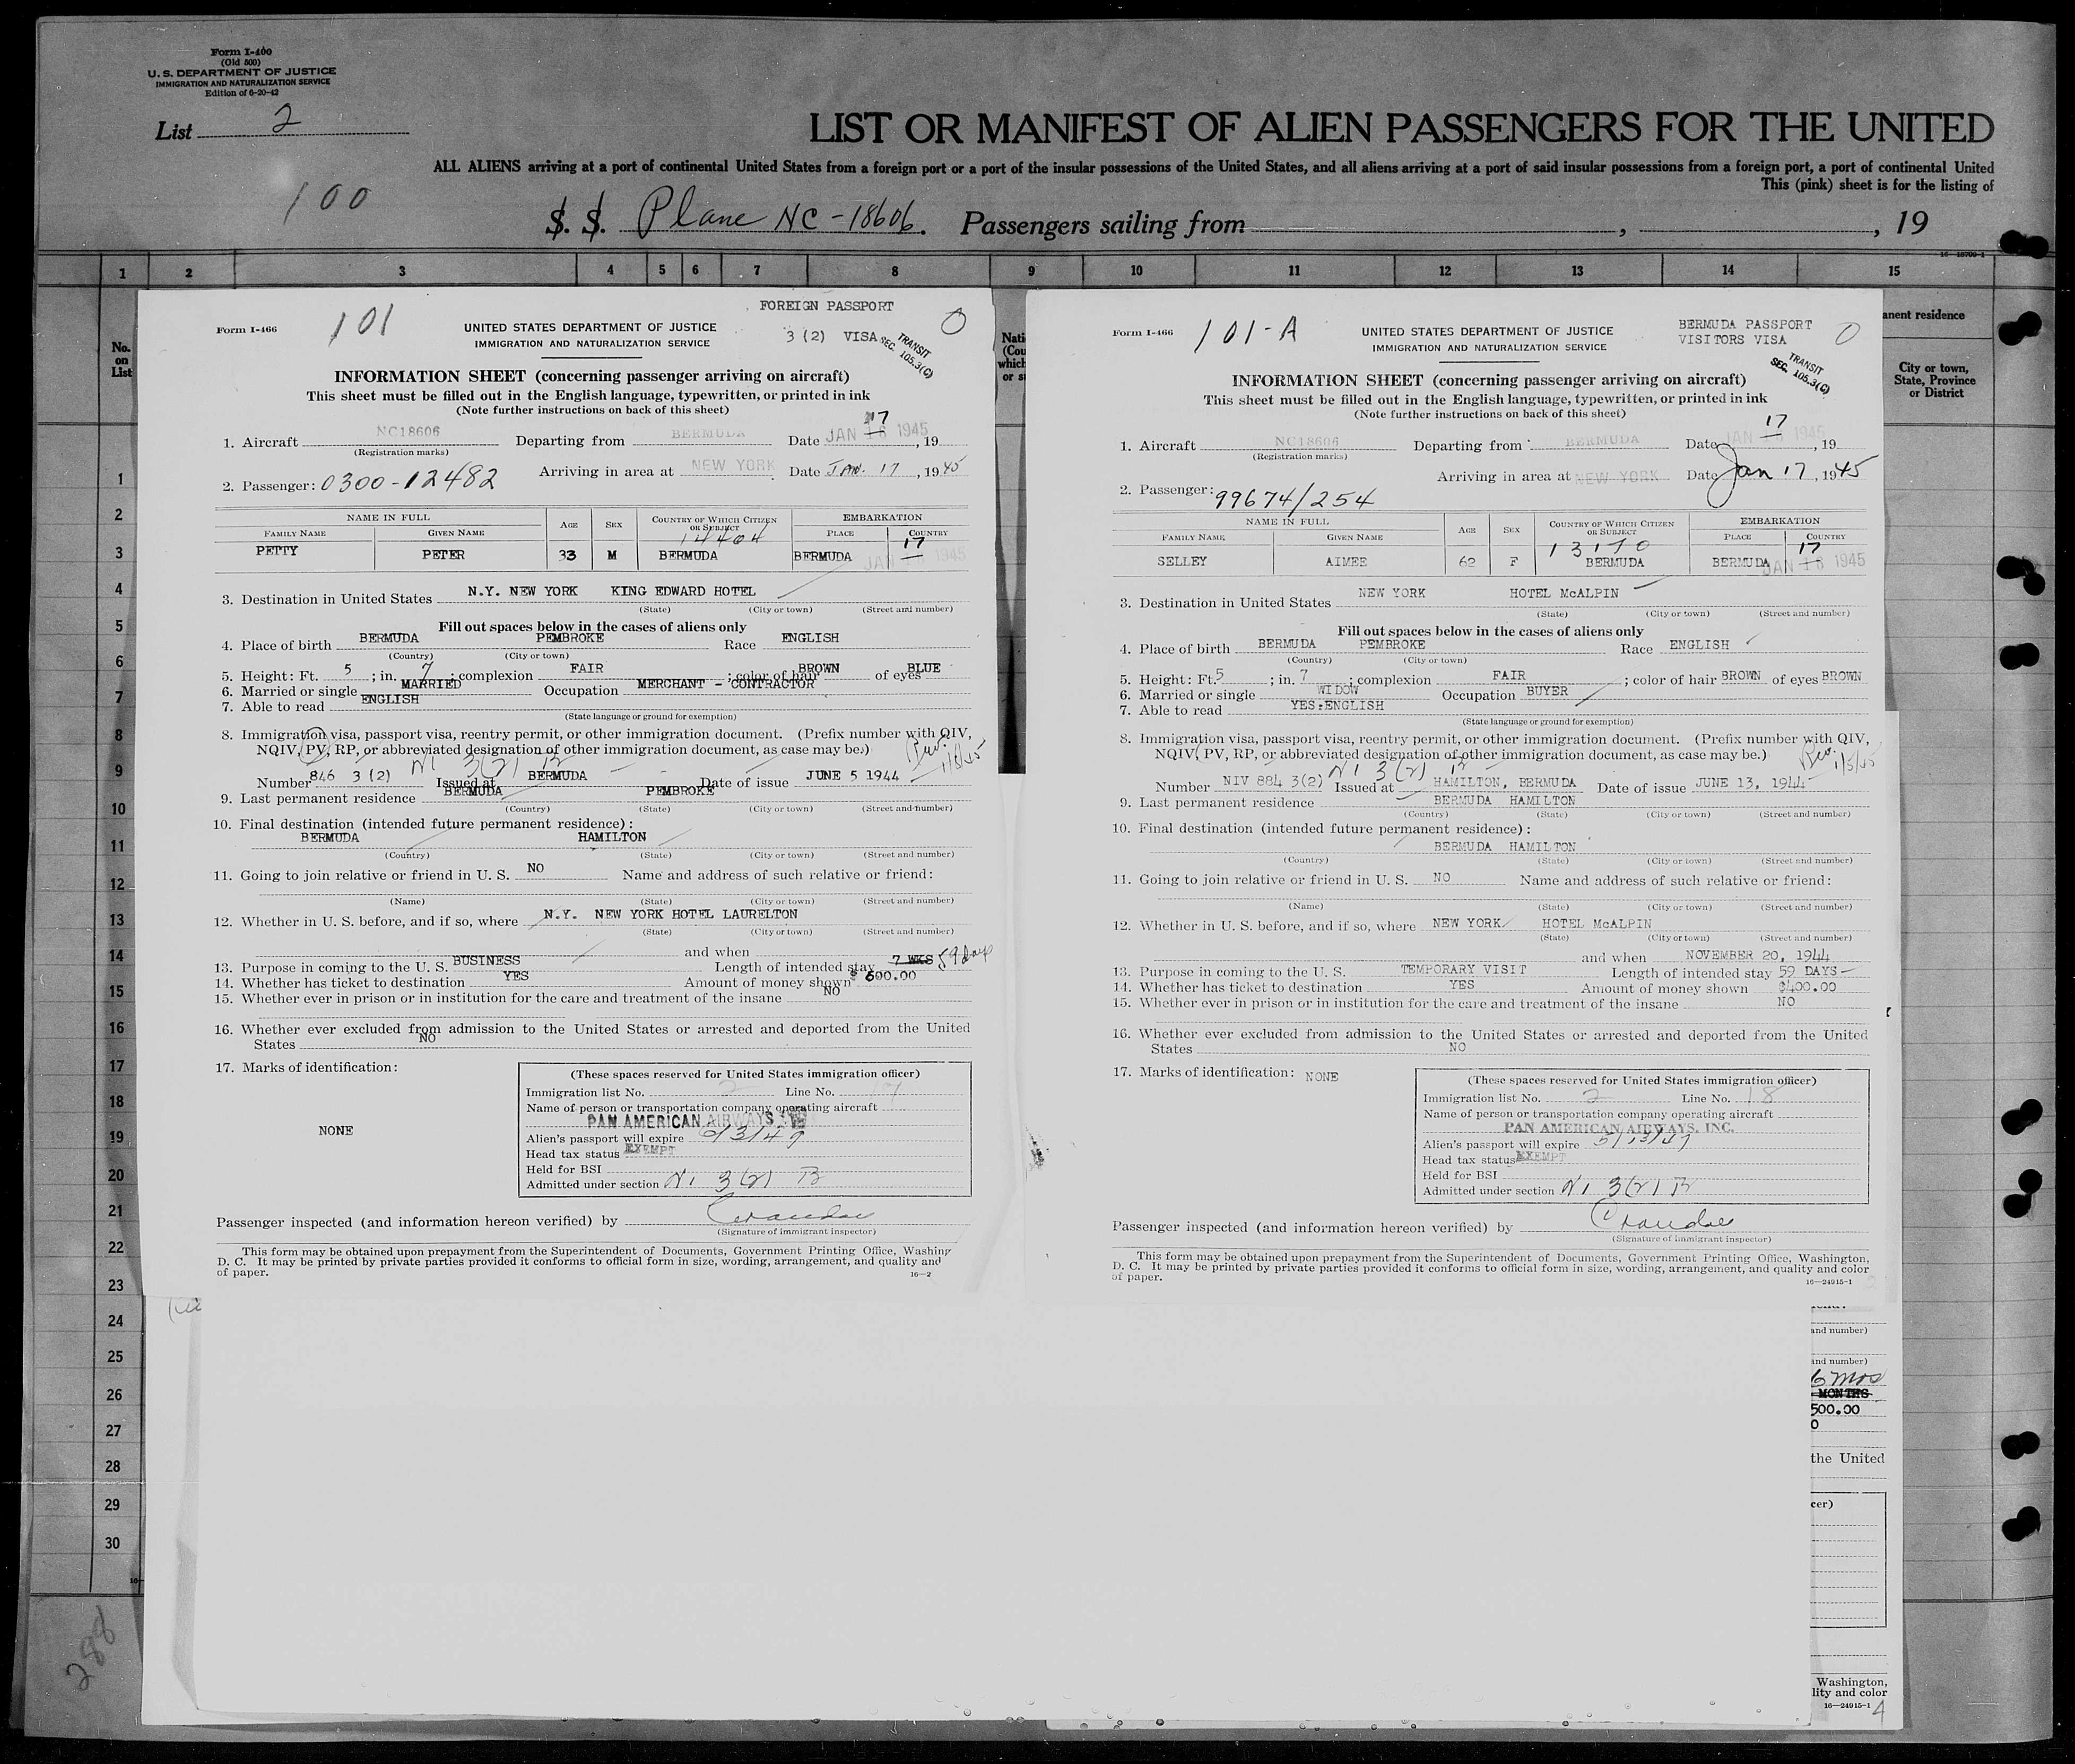 Form I-400
(Old 500)
U. S. DEPARTMENT OF JUSTICE
IMMIGRATION AND NATURALIZATION SERVICE
Edition of 6-20-42
List 2
100
LIST OR MANIFEST OF ALIEN PASSENGERS FOR THE UNITED
ALL ALIENS arriving at a port of continental United States from a foreign port or a port of the insular possessions of the United States, and all aliens arriving at a port of said insular possessions from a foreign port, a port of continental United
This (pink) sheet is for the listing of
S. S. Plane NC-18606. Passengers sailing from , , 19
1 2 3 4 5 6 7 8 9 10 11 12 13 14 15
No. on List
anent residence
City or town, State, Province or District
1
2
3
4
5
6
7
8
9
10
11
12
13
14
15
16
17
18
19
20
21
22
23
24
25
26
27
28
29
30
288
FOREIGN PASSPORT
Form I-466 101 UNITED STATES DEPARTMENT OF JUSTICE 3 (2) VISA 0
IMMIGRATION AND NATURALIZATION SERVICE
TRANSIT
SEC. 105.3(C)
INFORMATION SHEET (concerning passenger arriving on aircraft)
This sheet must be filled out in the English language, typewritten, or printed in ink
(Note further instructions on back of this sheet)
17
1. Aircraft NC18606 Departing from BERMUDA Date JAN 16 1945, 19
(Registration marks)
Arriving in area at NEW YORK Date JAN. 17, 1945
2. Passenger: 0300-12482
NAME IN FULL AGE SEX COUNTRY OF WHICH CITIZEN OR SUBJECT EMBARKATION
FAMILY NAME GIVEN NAME 14404 PLACE COUNTRY
PETTY PETER 33 M BERMUDA BERMUDA 17 JAN 16 1945
3. Destination in United States N.Y. NEW YORK KING EDWARD HOTEL
(State) (City or town) (Street and number)
Fill out spaces below in the cases of aliens only
4. Place of birth BERMUDA PEMBROKE Race ENGLISH
(Country) (City or town)
5. Height: Ft. 5; in. 7; complexion FAIR; color of hair BROWN of eyes BLUE
6. Married or single MARRIED Occupation MERCHANT - CONTRACTOR
7. Able to read ENGLISH
(State language or ground for exemption)
8. Immigration visa, passport visa, reentry permit, or other immigration document. (Prefix number with QIV,
NQIV, PV, RP, or abbreviated designation of other immigration document, as case may be.)
Number 846 3 (2) Issued at BERMUDA Date of issue JUNE 5 1944
9. Last permanent residence BERMUDA PEMBROKE
(Country) (State) (City or town) (Street and number)
10. Final destination (intended future permanent residence):
BERMUDA HAMILTON
(Country) (State) (City or town) (Street and number)
11. Going to join relative or friend in U. S. NO Name and address of such relative or friend:
(Name) (State) (City or town) (Street and number)
12. Whether in U. S. before, and if so, where N.Y. NEW YORK HOTEL LAURELTON
(State) (City or town) (Street and number)
and when
13. Purpose in coming to the U. S. BUSINESS Length of intended stay 7 WKS 59 days
14. Whether has ticket to destination YES Amount of money shown $ 600.00
15. Whether ever in prison or in institution for the care and treatment of the insane NO
16. Whether ever excluded from admission to the United States or arrested and deported from the United
States NO
17. Marks of identification:
NONE
(These spaces reserved for United States immigration officer)
Immigration list No. 2 Line No. 17
Name of person or transportation company operating aircraft
PAN AMERICAN AIRWAYS
Alien's passport will expire
Head tax status EXEMPT
Held for BSI
Admitted under section N1 3(2) B
Passenger inspected (and information hereon verified) by
(Signature of immigrant inspector)
This form may be obtained upon prepayment from the Superintendent of Documents, Government Printing Office, Washing
D. C. It may be printed by private parties provided it conforms to official form in size, wording, arrangement, and quality and
of paper.
16-2
Form I-466 101-A UNITED STATES DEPARTMENT OF JUSTICE BERMUDA PASSPORT 0
IMMIGRATION AND NATURALIZATION SERVICE VISITORS VISA
TRANSIT
SEC. 105.3(C)
INFORMATION SHEET (concerning passenger arriving on aircraft)
This sheet must be filled out in the English language, typewritten, or printed in ink
(Note further instructions on back of this sheet)
17
1. Aircraft NC18606 Departing from BERMUDA Date JAN 16 1945, 19
(Registration marks)
Arriving in area at NEW YORK Date Jan 17, 1945
2. Passenger: 99674/254
NAME IN FULL AGE SEX COUNTRY OF WHICH CITIZEN OR SUBJECT EMBARKATION
FAMILY NAME GIVEN NAME 13170 PLACE COUNTRY
SELLEY AIMEE 62 F BERMUDA BERMUDA 17 JAN 16 1945
3. Destination in United States NEW YORK HOTEL McALPIN
(State) (City or town) (Street and number)
Fill out spaces below in the cases of aliens only
4. Place of birth BERMUDA PEMBROKE Race ENGLISH
(Country) (City or town)
5. Height: Ft. 5; in. 7; complexion FAIR; color of hair BROWN of eyes BROWN
6. Married or single WIDOW Occupation BUYER
7. Able to read YES-ENGLISH
(State language or ground for exemption)
8. Immigration visa, passport visa, reentry permit, or other immigration document. (Prefix number with QIV,
NQIV, PV, RP, or abbreviated designation of other immigration document, as case may be.)
Number NIV 884 3(2) Issued at HAMILTON, BERMUDA Date of issue JUNE 13, 1944
9. Last permanent residence BERMUDA HAMILTON
(Country) (State) (City or town) (Street and number)
10. Final destination (intended future permanent residence):
BERMUDA HAMILTON
(Country) (State) (City or town) (Street and number)
11. Going to join relative or friend in U. S. NO Name and address of such relative or friend:
(Name) (State) (City or town) (Street and number)
12. Whether in U. S. before, and if so, where NEW YORK HOTEL McALPIN
(State) (City or town) (Street and number)
and when NOVEMBER 20, 1944
13. Purpose in coming to the U. S. TEMPORARY VISIT Length of intended stay 59 DAYS
14. Whether has ticket to destination YES Amount of money shown $400.00
15. Whether ever in prison or in institution for the care and treatment of the insane NO
16. Whether ever excluded from admission to the United States or arrested and deported from the United
States NO
17. Marks of identification: NONE
(These spaces reserved for United States immigration officer)
Immigration list No. 2 Line No. 18
Name of person or transportation company operating aircraft
PAN AMERICAN AIRWAYS, INC.
Alien's passport will expire
Head tax status EXEMPT
Held for BSI
Admitted under section N1 3(2) B
Passenger inspected (and information hereon verified) by
(Signature of immigrant inspector)
This form may be obtained upon prepayment from the Superintendent of Documents, Government Printing Office, Washington,
D. C. It may be printed by private parties provided it conforms to official form in size, wording, arrangement, and quality and color
of paper.
16-24915-1
and number)
and number)
6 mos
MONTHS
500.00
the United
cer)
Washington,
lity and color
16-24915-1
4